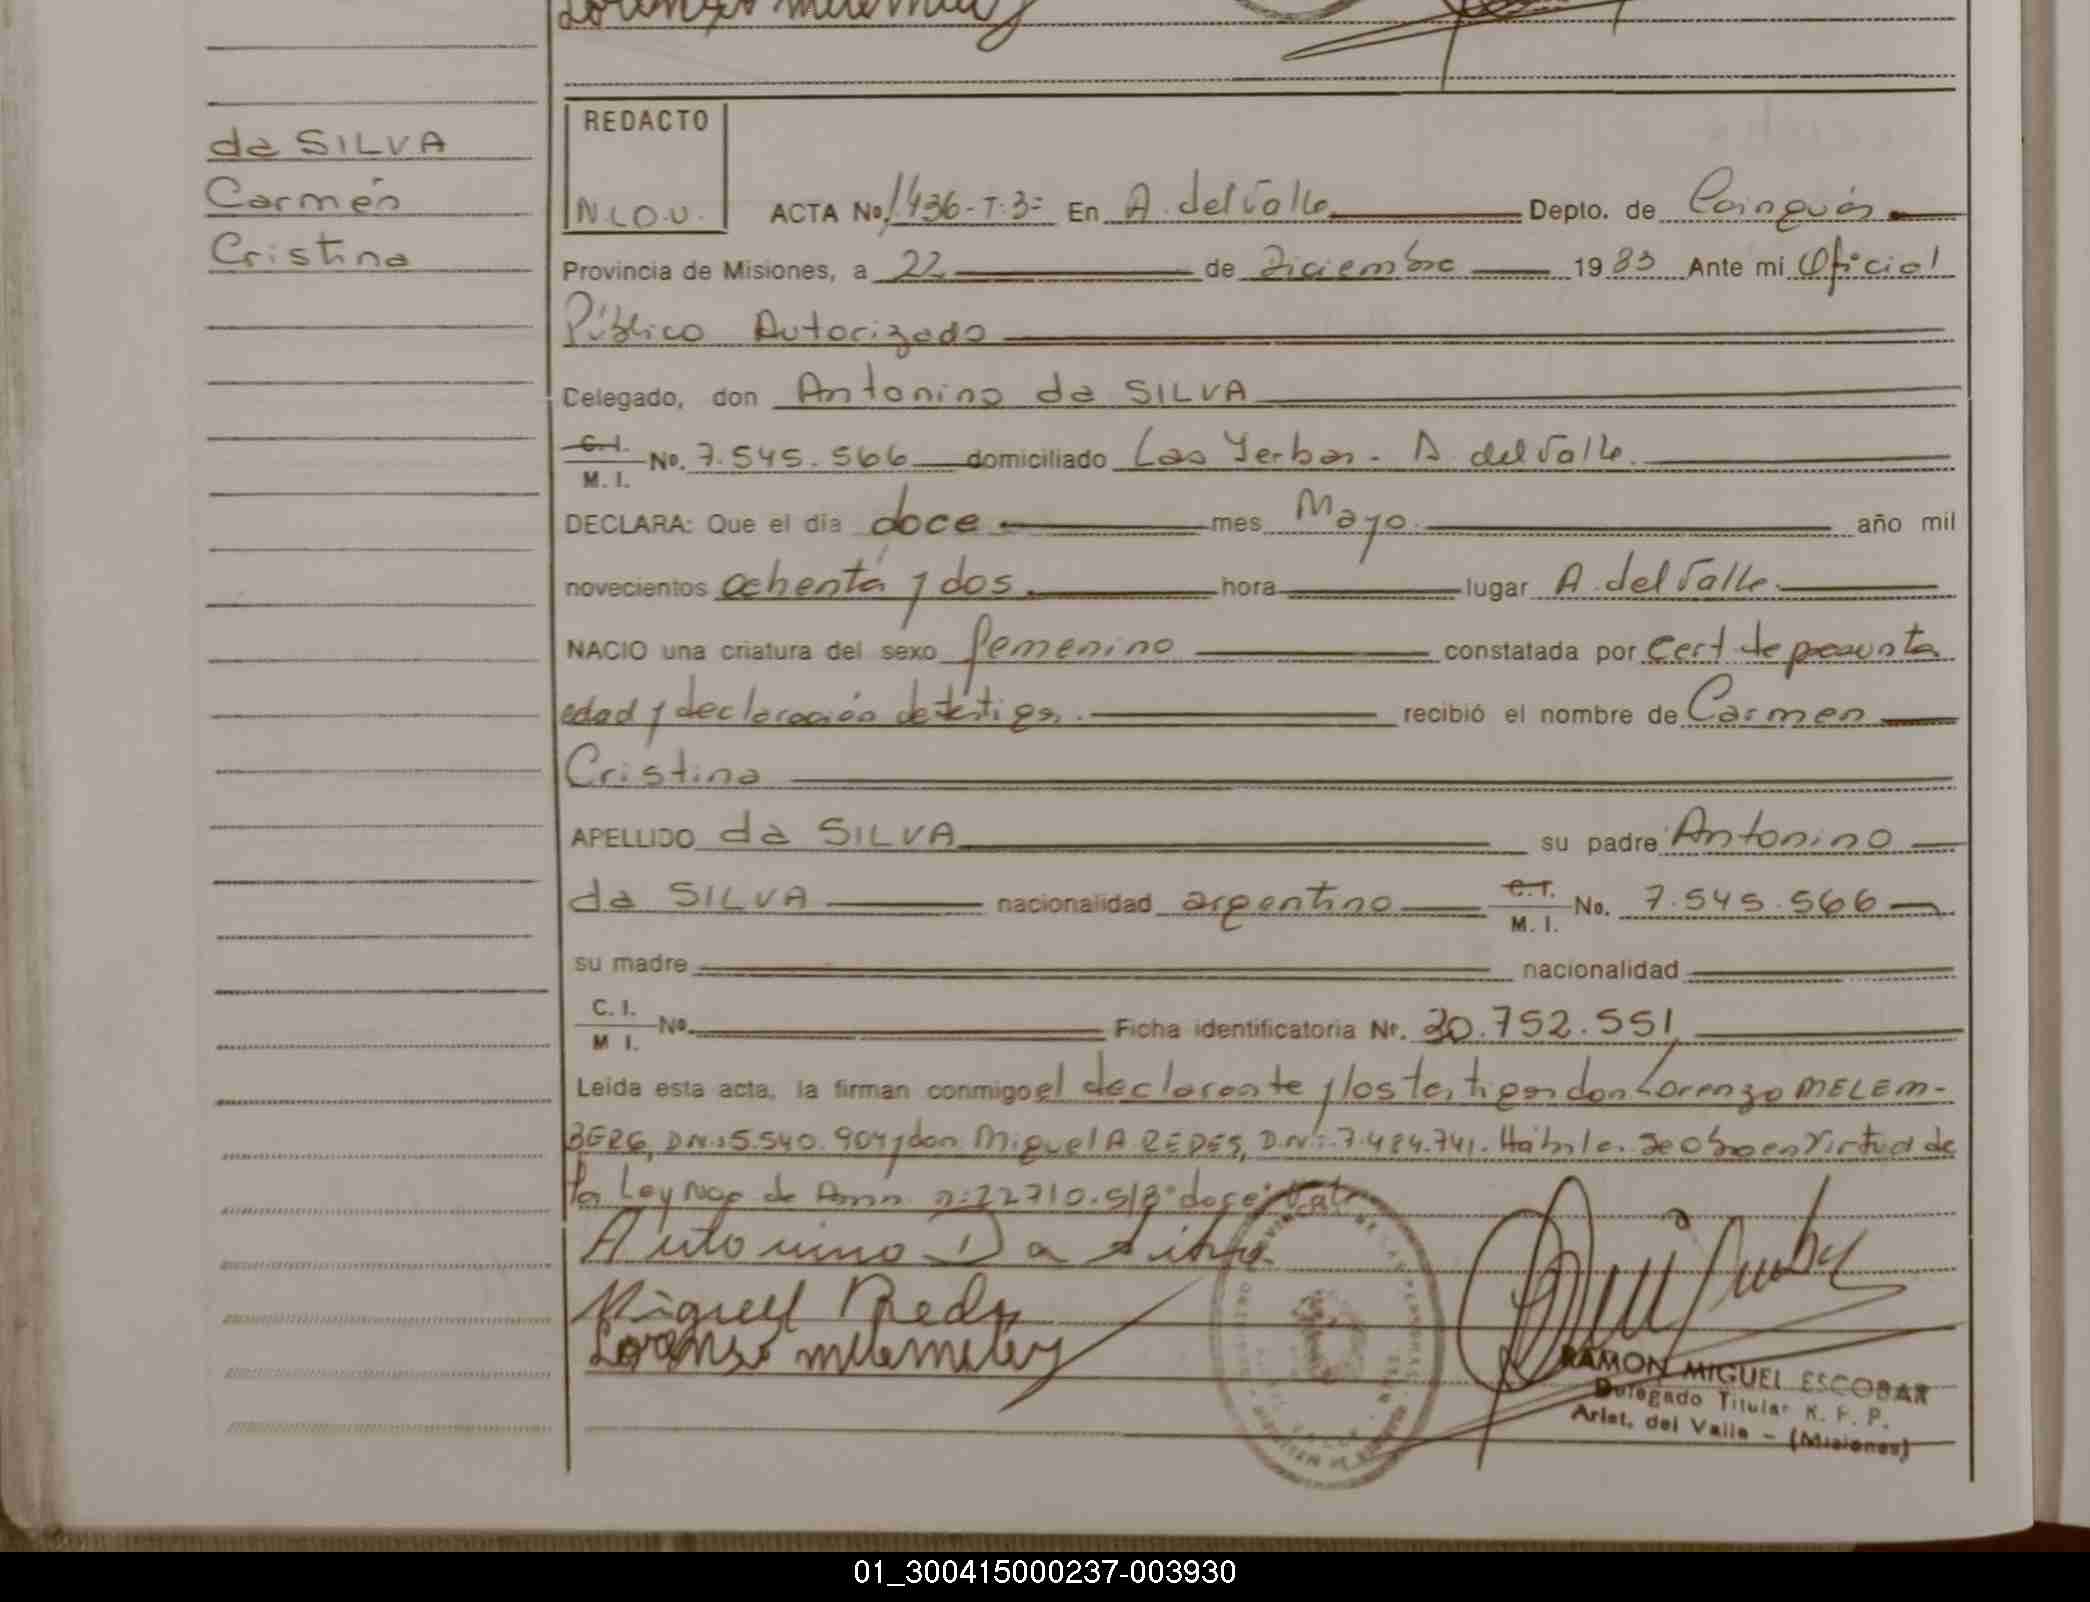 da SILVA
Carmen
Cristina
REDACTO
N.L.O.U.
ACTA No. 1436-T:3= En A. del Valle Depto. de Cainguás
Provincia de Misiones, a 22 de Diciembre 1983 Ante mi Oficial
Público Autorizado
Delegado, don Antonino da SILVA
C.I. M.I. No. 7.545.566 domiciliado Las Yerbas - A del Valle.
DECLARA: Que el día doce mes Mayo año mil
novecientos ochenta y dos hora lugar A. del Valle.
NACIO una criatura del sexo femenino constatada por cert de presunta
edad y declaración de testigos. recibió el nombre de Carmen
Cristina
APELLIDO da SILVA su padre Antonino
da SILVA nacionalidad argentino C.I. M.I. No. 7.545.566
su madre nacionalidad
C.I. M I. No. Ficha identificatoria Nr. 30.752.551
Leída esta acta, la firman conmigo el declarante y los testigos don Lorenzo MELEM-
BERG, DN: 5.540.904 y don Miguel A REDES, D.N: 7.484.741. Hábiles. Se obro en virtud de
la Ley Nac de Amn n: 22710. S/B "doce" Vale
Antonino Da Silva
Miguel Redes
Lorenso
RAMON MIGUEL ESCOBAR
Delegado Titular R. P. P.
Arist. del Valle - (Misiones)
01_300415000237-003930